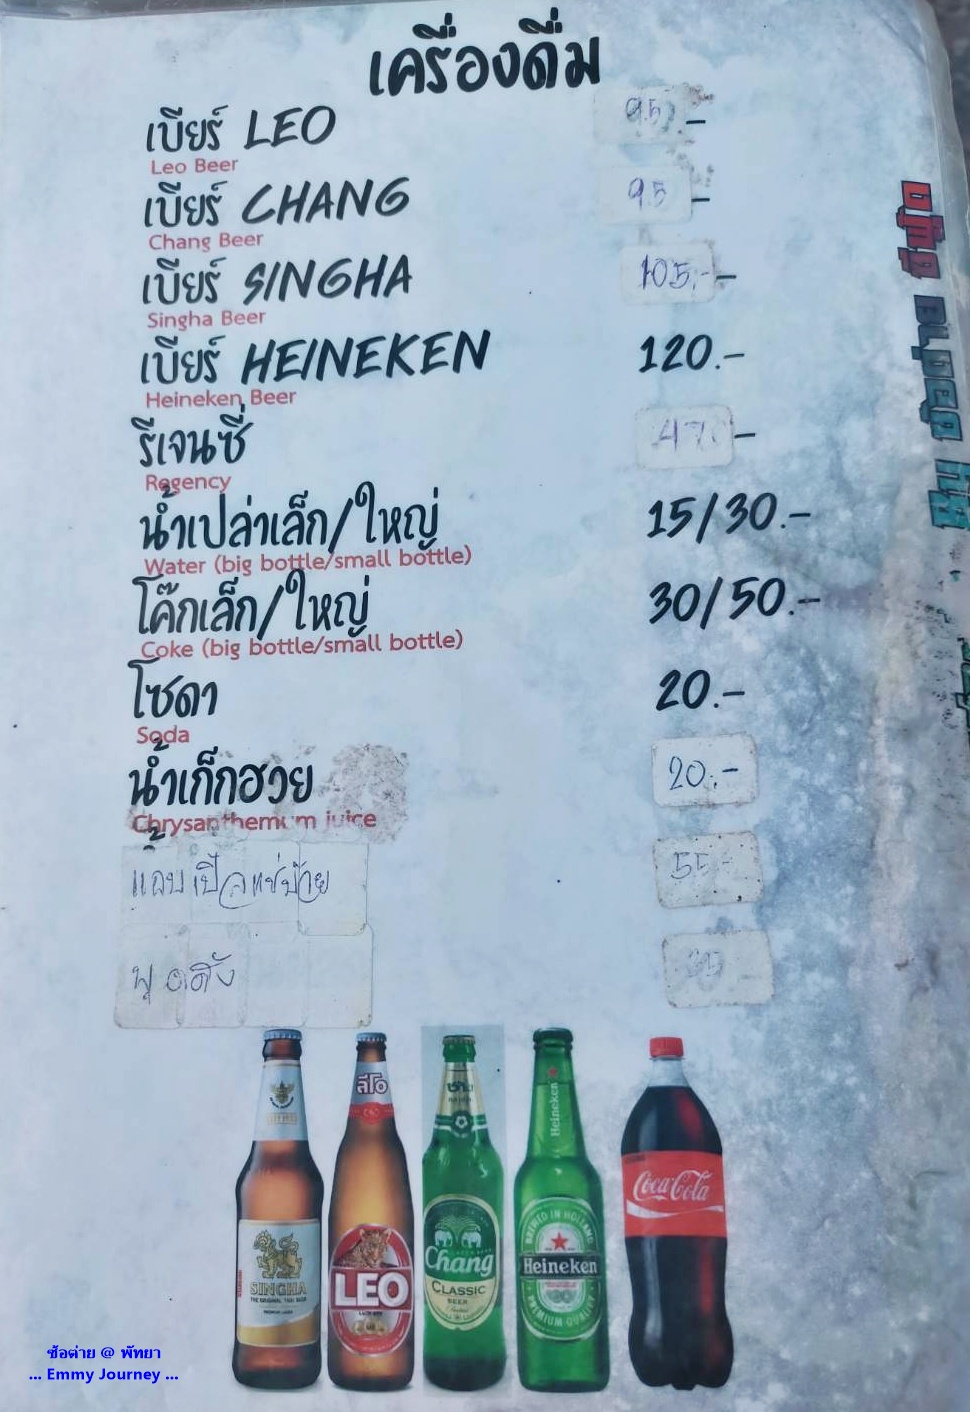 เครื่องดื่ม
เบียร์ LEO 95.-
Leo Beer
เบียร์ CHANG 95 -
Chang Beer
เบียร์ SINGHA 105.-
Singha Beer
เบียร์ HEINEKEN 120.-
Heineken Beer
รีเจนซี่
Regency
น้ำเปล่าเล็ก/ใหญ่ 15/30.-
Water (big bottle/small bottle)
โค๊กเล็ก/ใหญ่ 30/50.-
Coke (big bottle/small bottle)
โซดา 20.-
Soda
น้ำเก็กฮวย 20.-
Chrysanthemum juice
55.-
SINGHA
ลีโอ
LEO
ช้าง
Chang
CLASSIC
BEER
Heineken
BREWED IN HOLLAND
Heineken
PREMIUM QUALITY
Coca-Cola
ซ้อต่าย @ พัทยา
... Emmy Journey ...